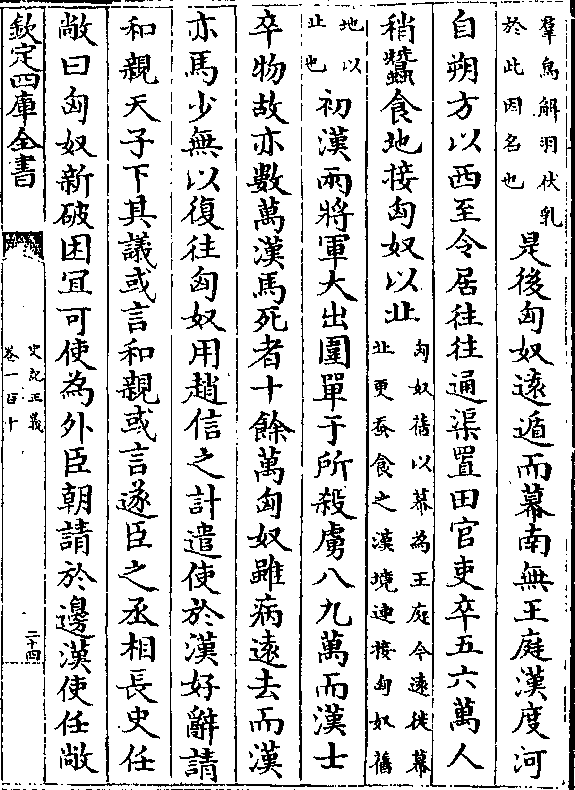 羣鳥解羽伏乳
於此因名也
是後匈奴遠遁而幕南無王庭漢度河
自朔方以西至令居往往通渠置田官吏卒五六萬人
稍蠶食地接匈奴以北
匈奴舊以幕為王庭今遠徙幕
北更蚕食之漢境連接匈奴舊
地以
北也
初漢兩將軍大出圍單于所殺虜八九萬而漢士
卒物故亦數萬漢馬死者十餘萬匈奴雖病遠去而漢
亦馬少無以復往匈奴用趙信之計遣使於漢好辭請
和親天子下其議或言和親或言遂臣之丞相長史任
敞曰匈奴新破困冝可使為外臣朝請於邊漢使任敞
欽定四庫全書
史記正義
卷一百十
二十四